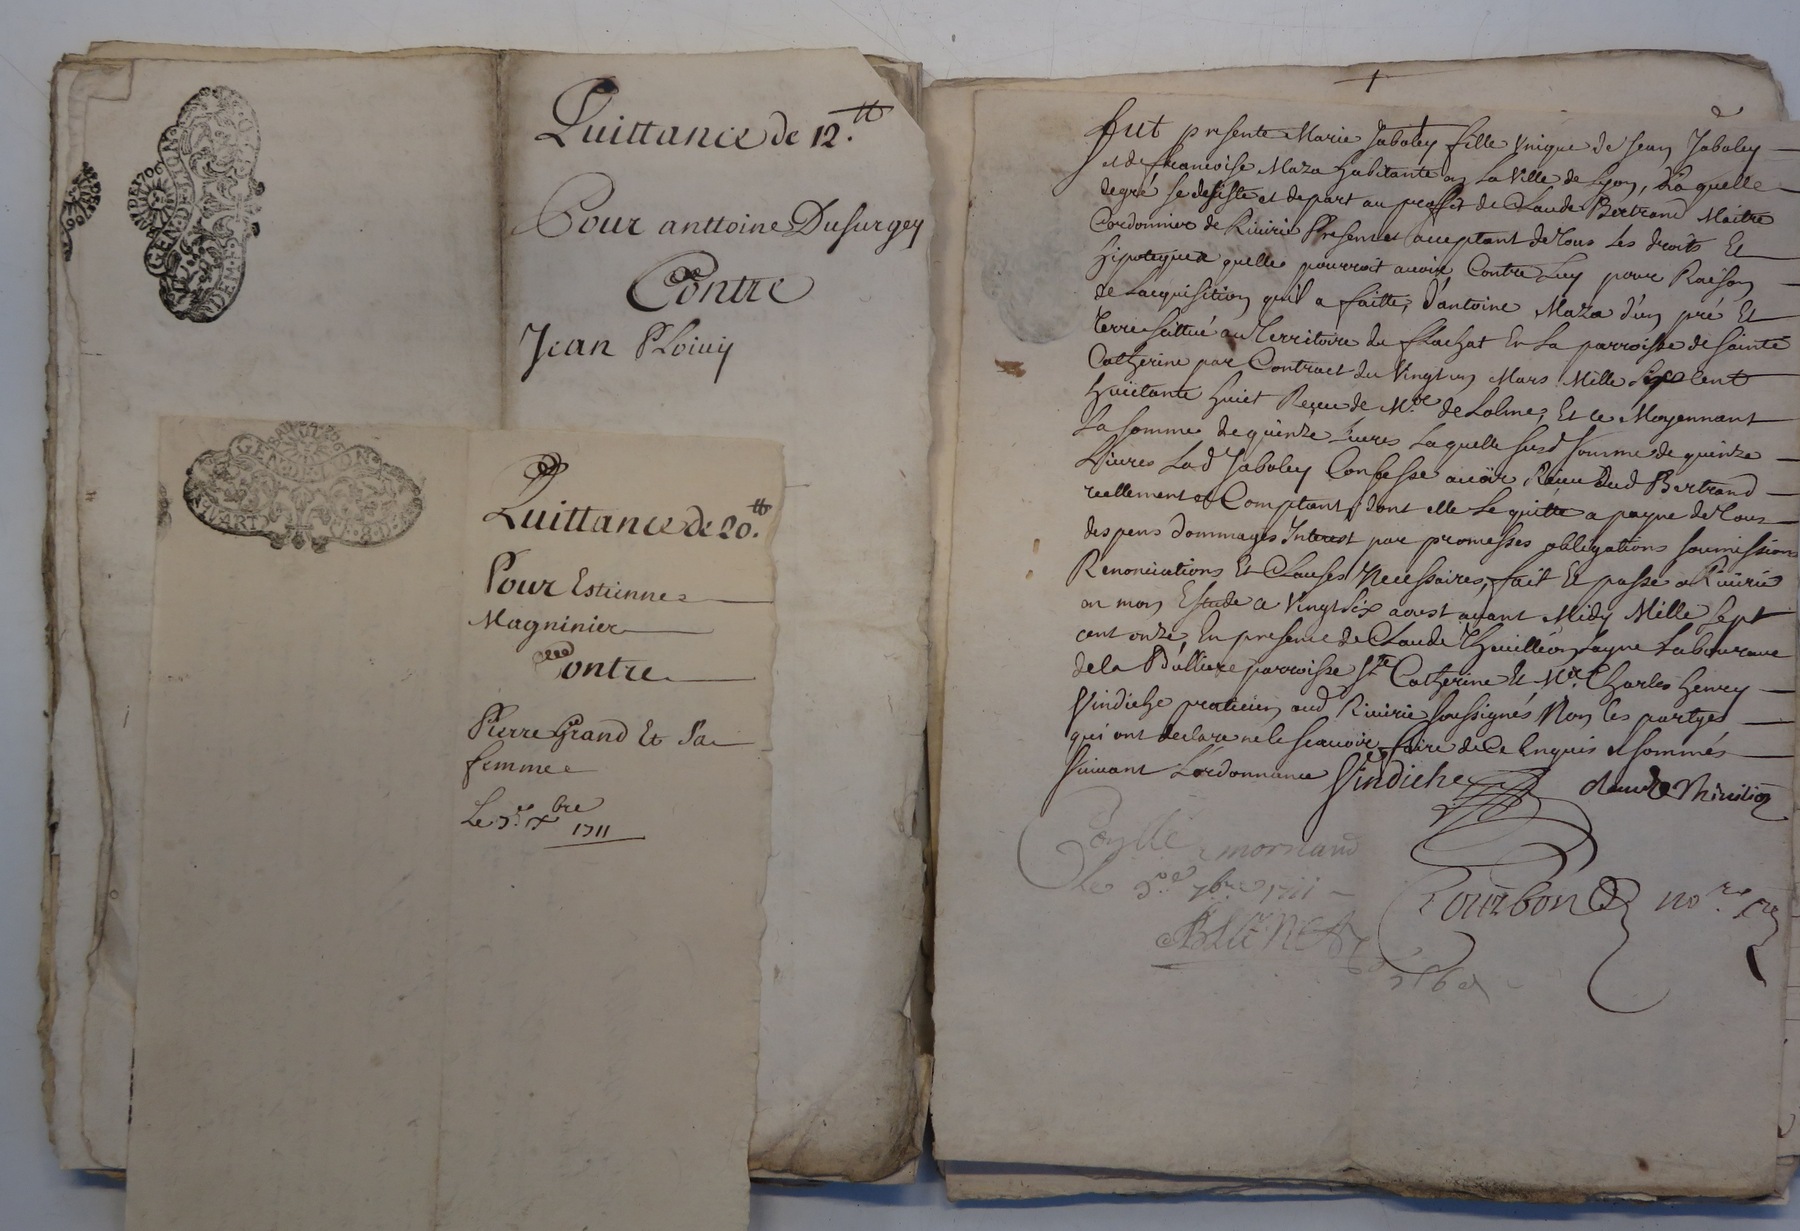 Quittance de 12.tt
Pour anttoine Dusurgey
Contre
Jean Ploivy
GEN DE LION
Quittance de 20.tt
Pour Estienne
Magninier
Contre
Pierre Grand Et Sa
femme
Le
1711
fut presente Marie Jaboley fille Unique de Jean Jaboley
et de francoise Maza habitante en La Ville de Lyon, Laquelle
de gré se desiste et depart au proffit de Claude Bertrand Maitre
Cordonnier de Riuirie Present et acceptant de Tous Les droits Et
hipoteques quelle pourroit auoir Contre Luy pour Raison
de Lacquisition qu'il a faitte, d'antoine Maza d'un pré Et
Terre scittué au Territoire du flachat En La parroisse de Sainte
Catherine par Contract du Vingt un Mars Mille Sept Cent
huictante huict Receu de M.re de Lolme, Et ce Moyennant
La somme de quinze Liures Laquelle susd Somme de quinze
Liures Lad Jaboley Confesse auoir Receu dud Bertrand
reellement et Comptant, dont elle Le quitte a payne de Tous
despens dommages Interest par promesses obligations soumissions
Renonciations Et Clauses Necessaires, fait Et passé a Riuirie
en mon Estude a Vingt six aoust auant Midy Mille Sept
cent onze En presence de Claude Thevillion Layne Laboureur
de la Bulliere parroisse S.te Catherine Et M.re Charles henry
Vindiche praticien aud Riuirie soussignés Non les partyes
qui ont declaré ne le scauoir faire de Ce Enquis et sommés
Suiuant Lordonnance Vindiche Claude
mornand
Le 5.e 7bre 1711
Bourbon no.re